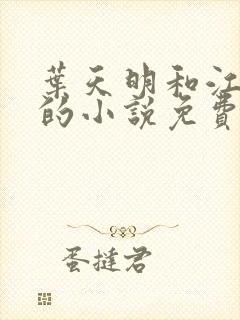 葉天明和江
的小說免費
蛋撻君